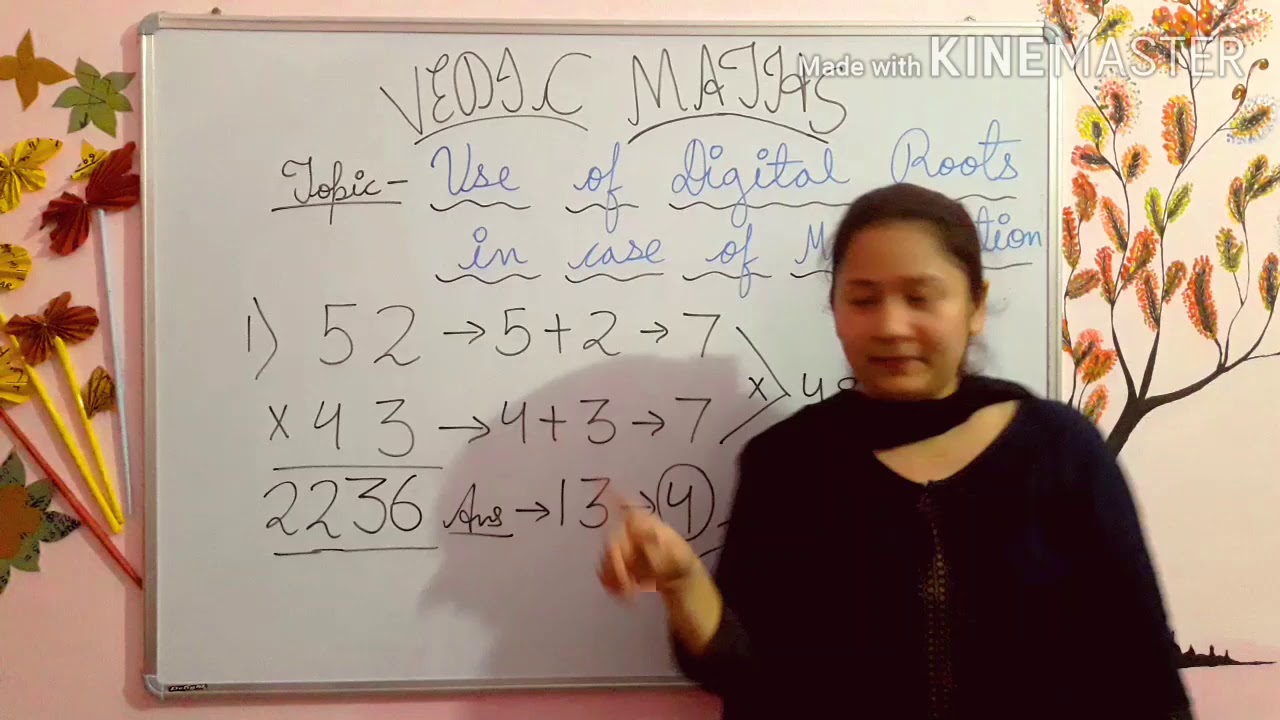 Made with KINEMASTER
VEDIC MATHS
Topic- Use of Digital Roots
in case of
1) 52 → 5+2 → 7
× 4
× 43 → 4+3 → 7
2236 Ans → 13 → 4
Delight